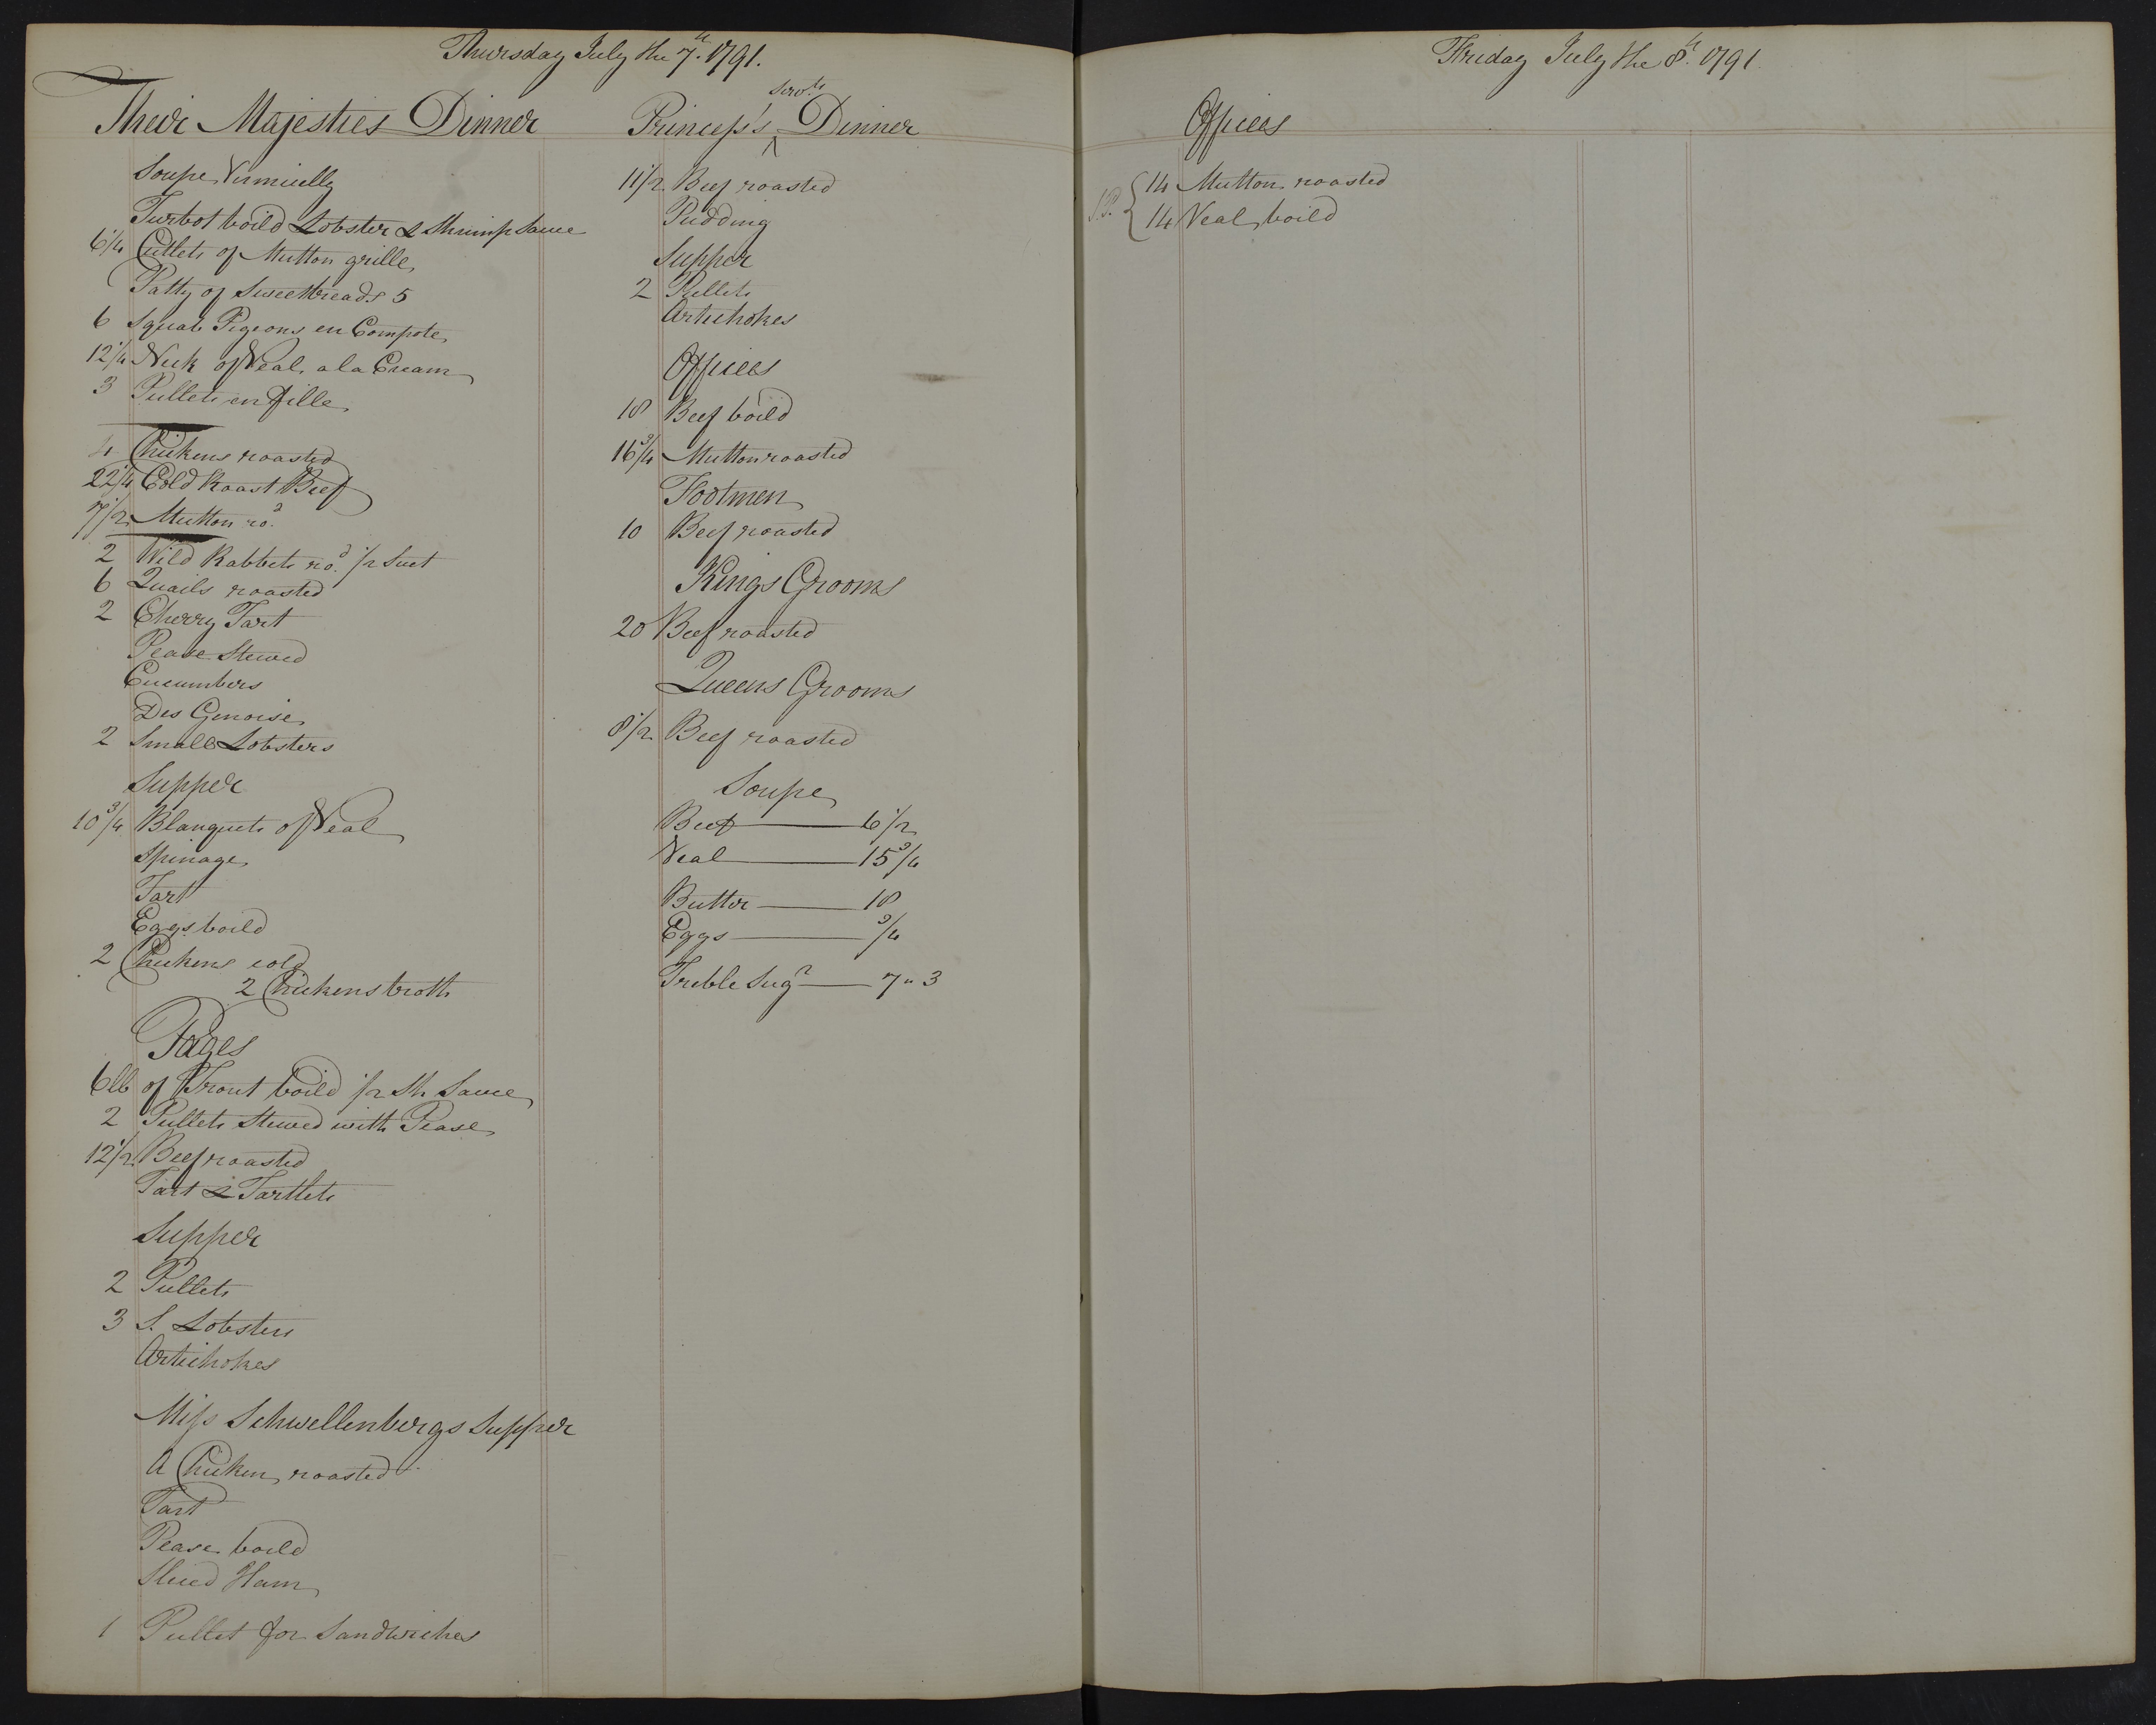 Thursday July the 7th. 1791.
Their Majesties Dinner
Soupe Vermicelly
Turbot boild Lobster & Shrimp Sauce
6 1/4 Cutlets of Mutton grille
Patty of Sweetbreads 5
6 Squab Pigeons en Compote
12 1/4 Neck of Veal a la Cream
3 Pullets en fille
4 Chickens roasted
22 1/4 Cold Roast Beef
7 1/2 Mutton rod.
2 Wild Rabbets rod. 1/2 Suet
6 Quails roasted
2 Cherry Tart
Pease Stewed
Cucumbers
Des Genoise
2 Small Lobsters
Supper
10 3/4 Blanquets of Veal
Spinage
Tart
Eggs boild
2 Chickens cold
2 Chickens broth
Pages
6lb of Trout boild 1/2 Sh Sauce
2 Pullets Stewed with Pease
12 1/2 Beef roasted
Tart & Tartlets
Supper
2 Pullets
3 S. Lobsters
Artichokes
Miss Schwellenbergs Supper
A Chicken roasted
Tart
Pease boild
Sliced Ham
1 Pullet for Sandwiches
Princess's Servts Dinner
11 1/2 Beef roasted
Pudding
Supper
2 Pullets
Artichokes
Offices
18 Beef boild
16 3/4 Mutton roasted
Footmen
10 Beef roasted
Kings Grooms
20 Beef roasted
Queens Grooms
8 1/2 Beef roasted
Soupe
Beef — 6 1/2
Veal — 15 3/4
Butter — 18
Eggs — 3/4
Treble Sugr — 7 " 3
Friday July the 8th. 1791
Offices
14 Mutton roasted
14 Veal boild